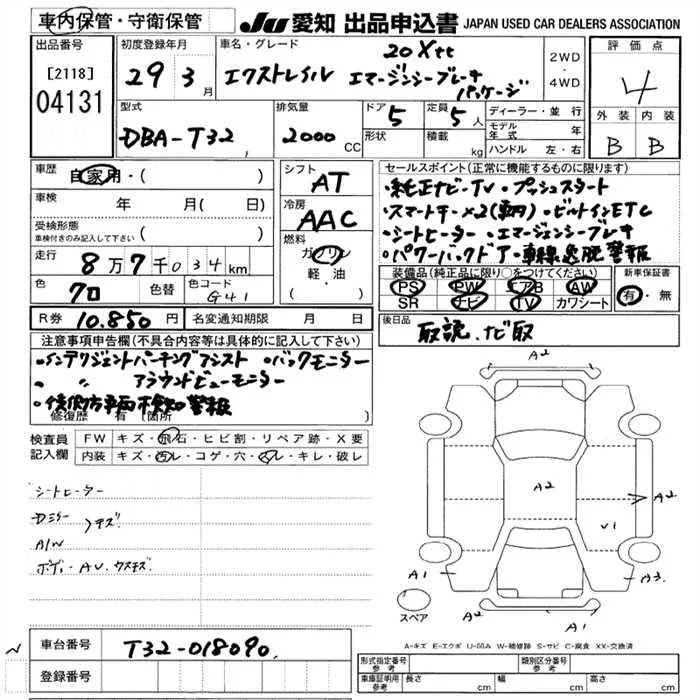 車内保管・守衛保管
JU 愛知 出品申込書 JAPAN USED CAR DEALERS ASSOCIATION
出品番号 初度登録年月 車名・グレード 評価点
[2118] 04131
29 3月
20Xtt
エクストレイル エマージンシーブレーキ パッケージ
2WD・4WD
4
型式 排気量 ドア 定員 ディーラー・並行 外装 内装
DBA-T32 2000CC 5 5人
形状 積載 kg モデル年式 年
ハンドル 左・右
B B
車歴 自家用・( )
車検 年 月( 日)
受検形態 車検付きのみ記入して下さい ( )
走行 8万7千034km
色 クロ 色替 色コード G41
R券 10,850円 名変通知期限 月 日
シフト AT
冷房 AAC
燃料 ガソリン 軽油
セールスポイント(正常に機能するものに限ります)
・純正ナビ・TV ・プッシュスタート
・スマートキー×2(車内) ・ビルトインETC
・シートヒーター ・エマージンシーブレーキ
・パワーバックドア ・車線逸脱警報
装備品(純正品に限り○をつけてください) 新車保証書
PS PW エアB AW 有・無
SR ナビ TV カワシート
後日品 取説、ナビ取
注意事項申告欄(不具合内容等は具体的に記入して下さい)
・インテリジェントパーキングアシスト ・バックモニター
・ 〃 アラウンドビューモニター
・後側方車両検知警報
修復歴 有 [箇所
検査員記入欄 FW キズ・飛石・ヒビ割・リペア跡・X要
内装 キズ・汚レ・コゲ・穴・スレ・キレ・破レ
シートヒーター
Dミラー >キズ
A/W
ボディ・AU.ウスキズ.
A2
A2
A2
U1
A1
A2
A3
A1
スペア
A-キズ E-エクボ U-凹み W-補修跡 S-サビ C-腐食 XX-交換済
車台番号 T32-018090
登録番号
形式指定番号 参考 類別区分番号 参考
車庫証明用 参考 長さ cm 幅 cm 高さ cm